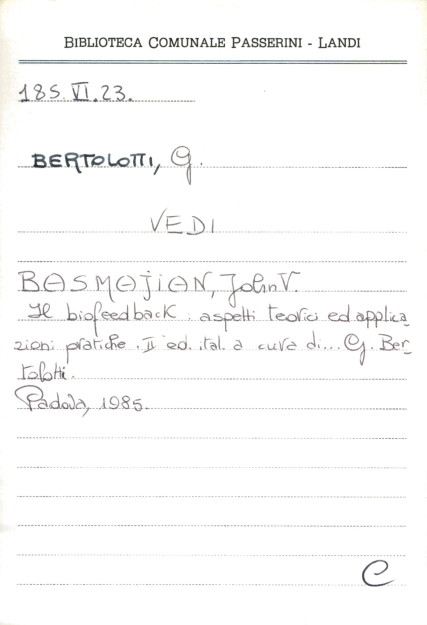 BIBLIOTECA COMUNALE PASSERINI - LANDI
185.VI.23.
BERTOLOTTI, G.
VEDI
BASMAJIAN, John V.
Il biofeedback : aspetti teorici ed applica
zioni pratiche. II ed. ital. a cura di... G. Ber-
tolotti.
Padova, 1985.
C